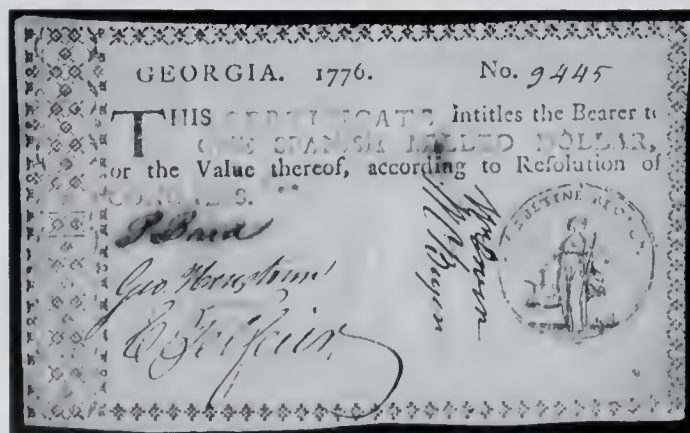 GEORGIA. 1776. No. 9445
THIS CERTIFICATE Intitles the Bearer to
ONE SPANISH MILLED DOLLAR,
or the Value thereof, according to Reſolution of
CONGRESS.
Geo. Houstoun
SUSTINE RECTUM